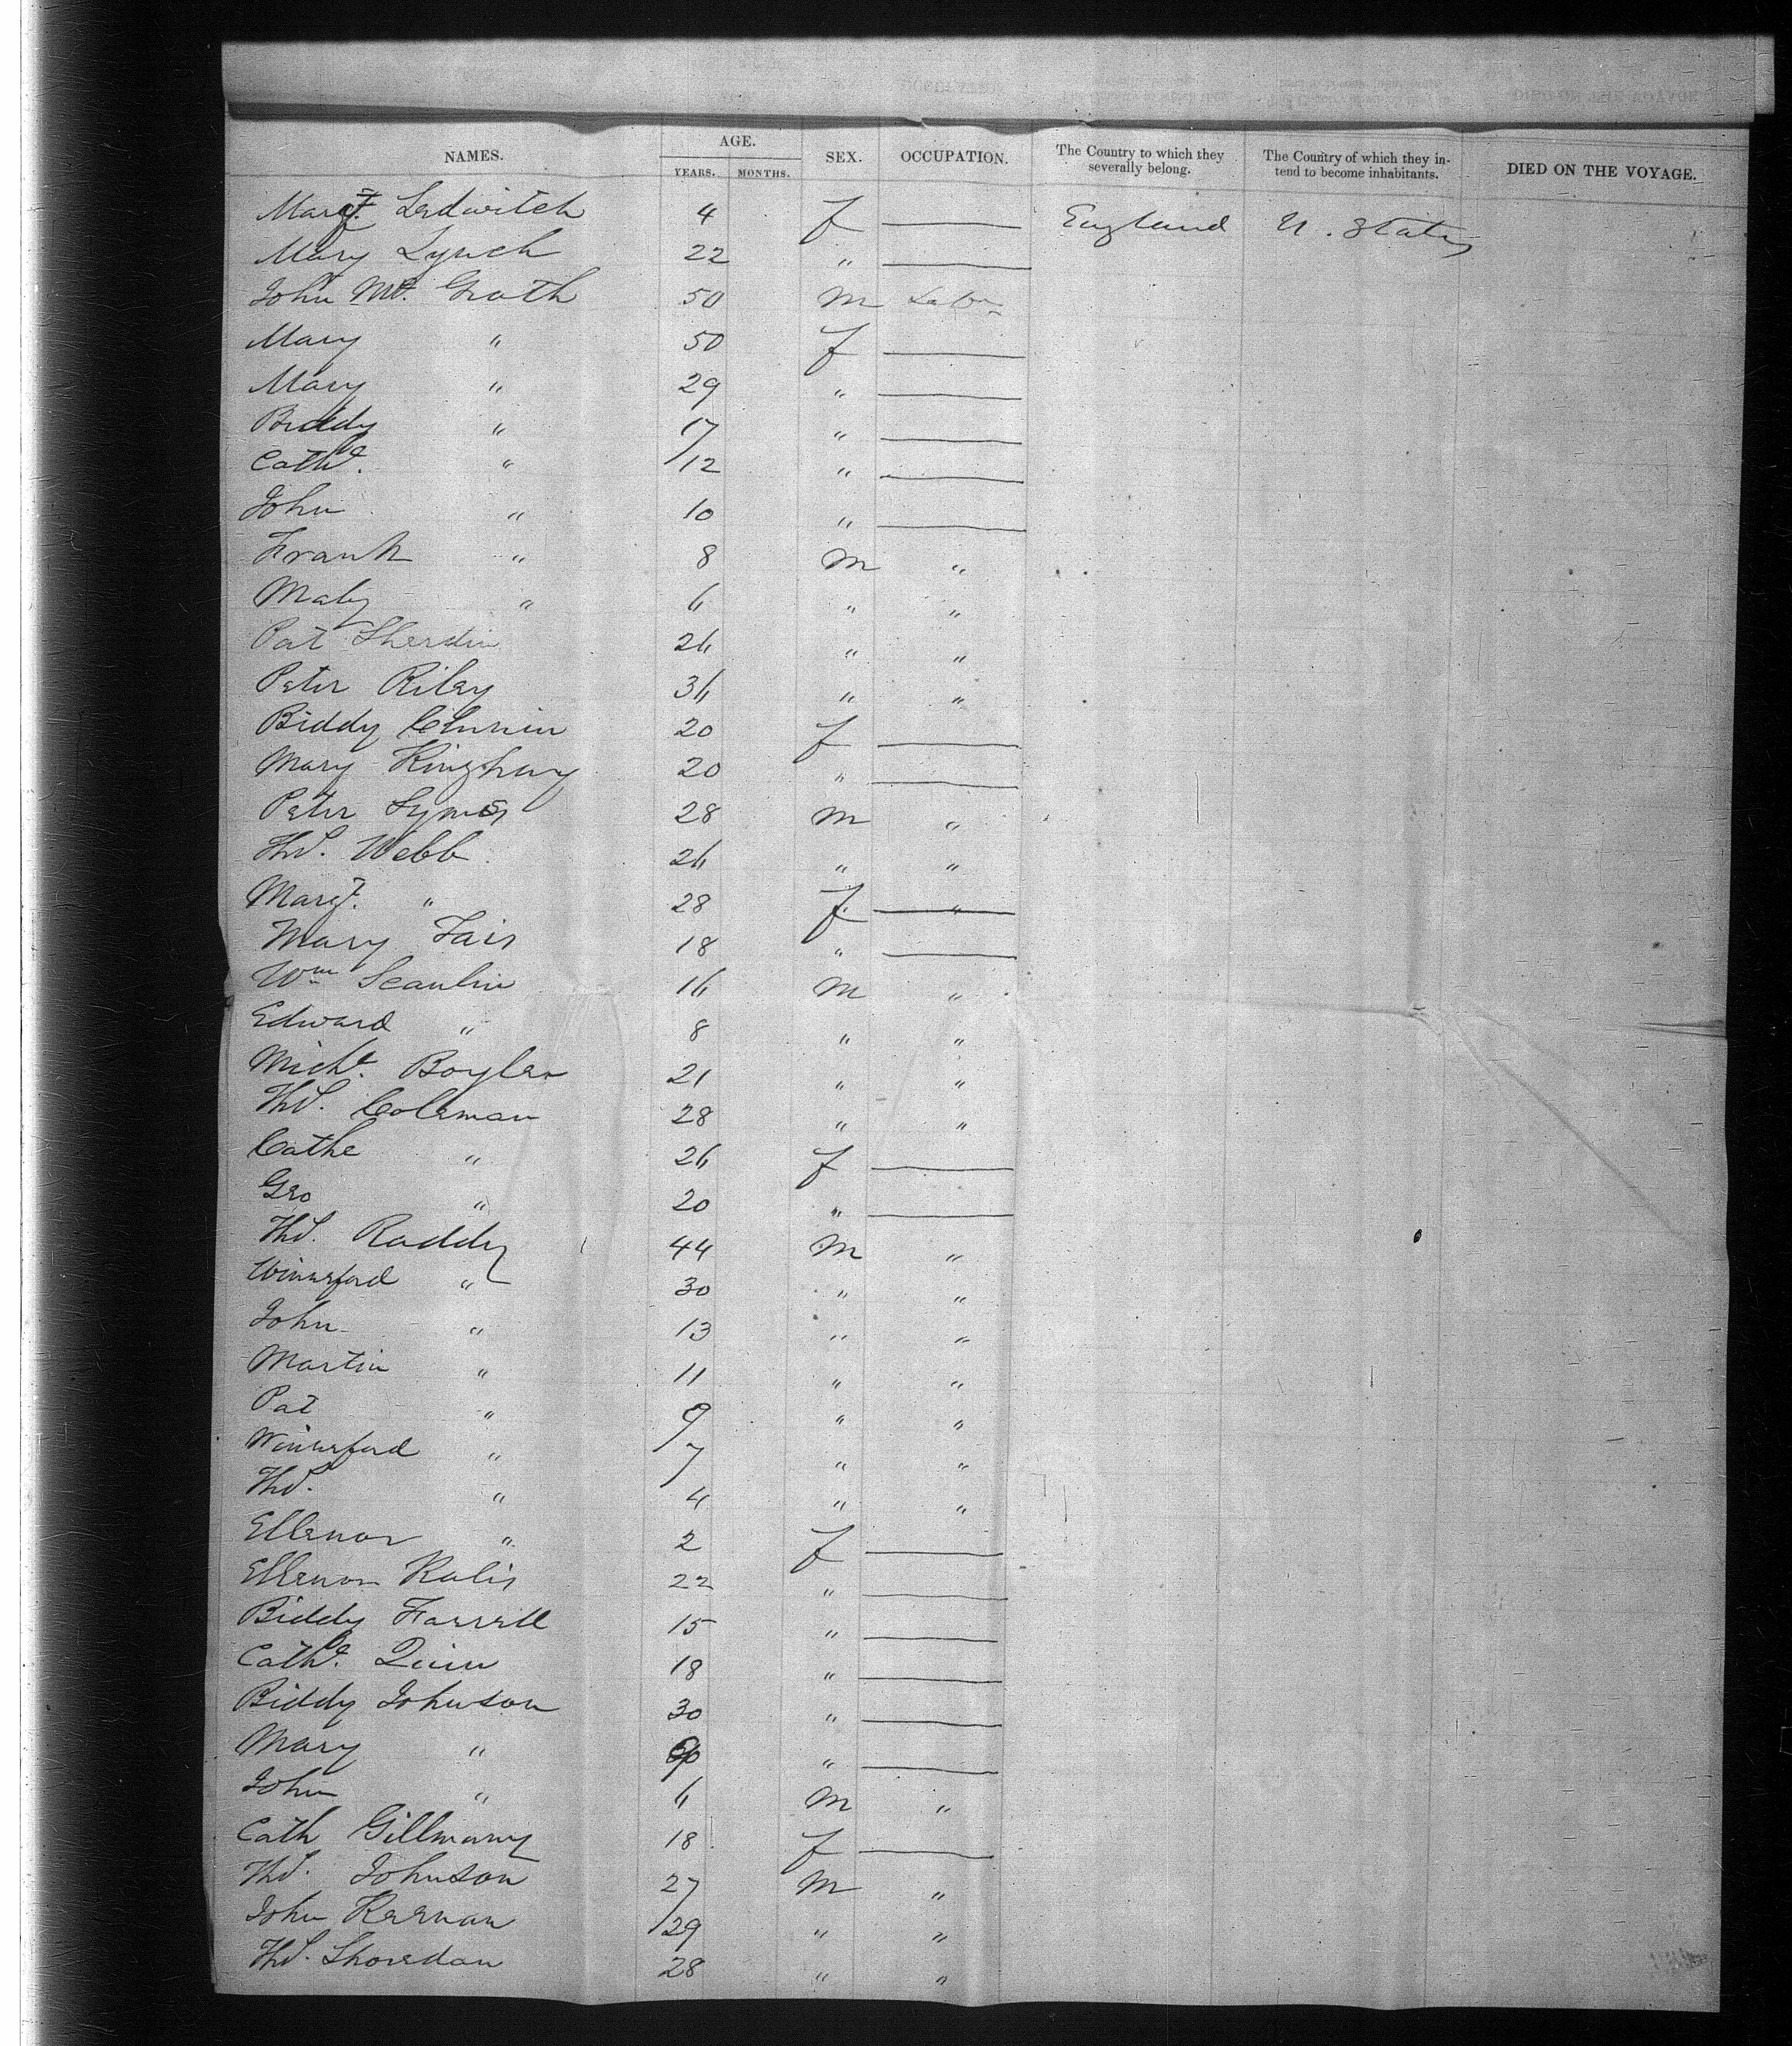 NAMES. AGE. SEX. OCCUPATION. The Country to which they severally belong. The Country of which they intend to become inhabitants. DIED ON THE VOYAGE.
YEARS. MONTHS.
Margt. Ledwitch 4 f —— England U. States
Mary Lynch 22 " ——
John Mc. Grath 50 m Labr
Mary " 50 f ——
Mary " 29 " ——
Biddy " 17 " ——
Cathe. " 12 " ——
John " 10 " ——
Frank " 8 m "
Maly " 6 " "
Pat Sherdin 26 " "
Peter Riley 36 " "
Biddy 20 f ——
Mary 20 " ——
Peter 28 m "
Thos. Webb 26 " "
Margt. " 28 f —"—
Mary Fair 18 " ——
Wm Scanlin 16 m "
Edward " 8 " "
Michl. Boylen 21 " "
Thos. Coleman 28 " "
Cathe " 26 f ——
Geo " 20 " ——
Thos. Roddy 44 m "
Winerford " 30 " "
John " 13 " "
Martin " 11 " "
Pat " 9 " "
Winerford " 7 " "
Thos. " 4 " "
Ellenor " 2 f ——
Ellenor 22 " ——
Biddy Farrell 15 " ——
Cathe. Quin 18 " ——
Biddy Johnson 30 " ——
Mary " " ——
John " 6 m "
Cath 18 f ——
Thos. Johnson 27 m "
John Keenan 29 " "
Thos. Shoredan 28 " "